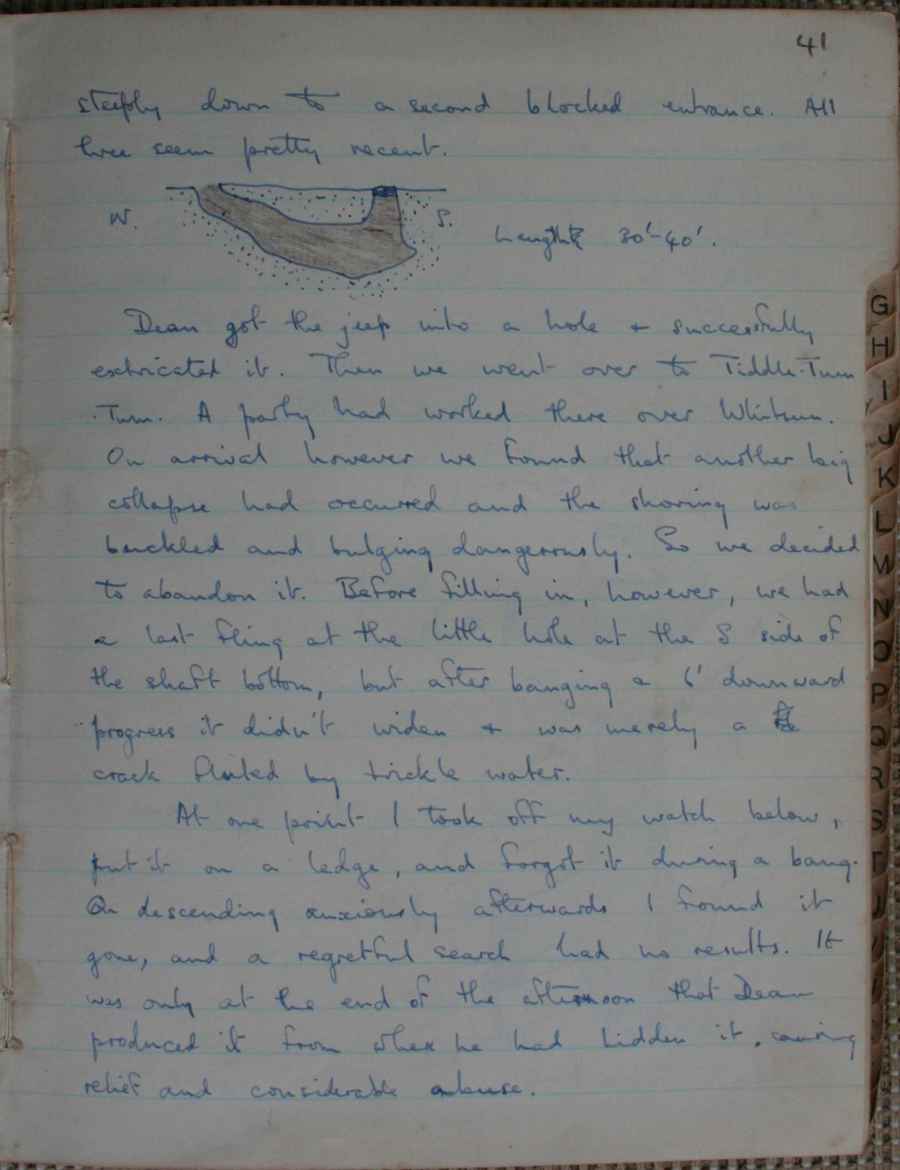 41
steeply down to a second blocked entrance. All
three seem pretty recent.
W.
S.
Length 30'-40'.
Dean got the jeep into a hole + successfully
extricated it. Then we went over to Tiddle-Tum
-Tum. A party had worked there over Whitsun.
On arrival however we found that another big
collapse had occurred and the shoring was
buckled and bulging dangerously. So we decided
to abandon it. Before filling in, however, we had
a last fling at the little hole at the S side of
the shaft bottom, but after banging a 6' downward
progress it didn't widen + was merely a
crack fluted by trickle water.
At one point I took off my watch below,
put it on a ledge, and forgot it during a bang.
On descending anxiously afterwards I found it
gone, and a regretful search had no results. It
was only at the end of the afternoon that Dean
produced it from where he had hidden it, causing
relief and considerable abuse.
G
H
I
J
K
L
M
N
O
P
Q
R
S
T
U